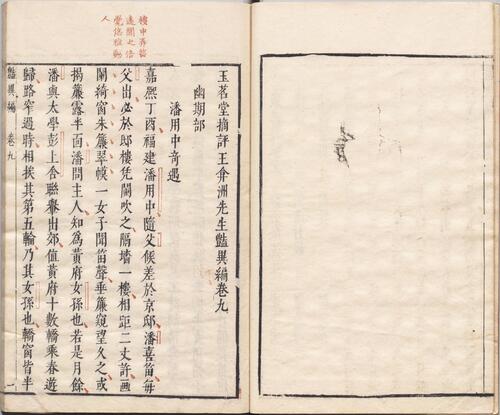 玉茗堂摘評王弇洲先生豔異編卷九
幽期部
潘用中奇遇
嘉熙丁酉福建潘用中隨父候差於京邸潘喜笛每
父出必於邸樓凭闌吹之隔墻一樓相距二丈許畫
闌綺窗朱簾翠幙一女子聞笛聲垂簾窺望久之或
揭簾露半面潘問主人知為黃府女孫也若是月餘
潘與太學彭上舍聯轝出郊值黃府十數轎乘春遊
歸路窄過時相挨其第五轎乃其女孫也轎窗皆半
豔異編 卷九 一
樓中弄笛
遠聞之倍
覺悠雅動
人